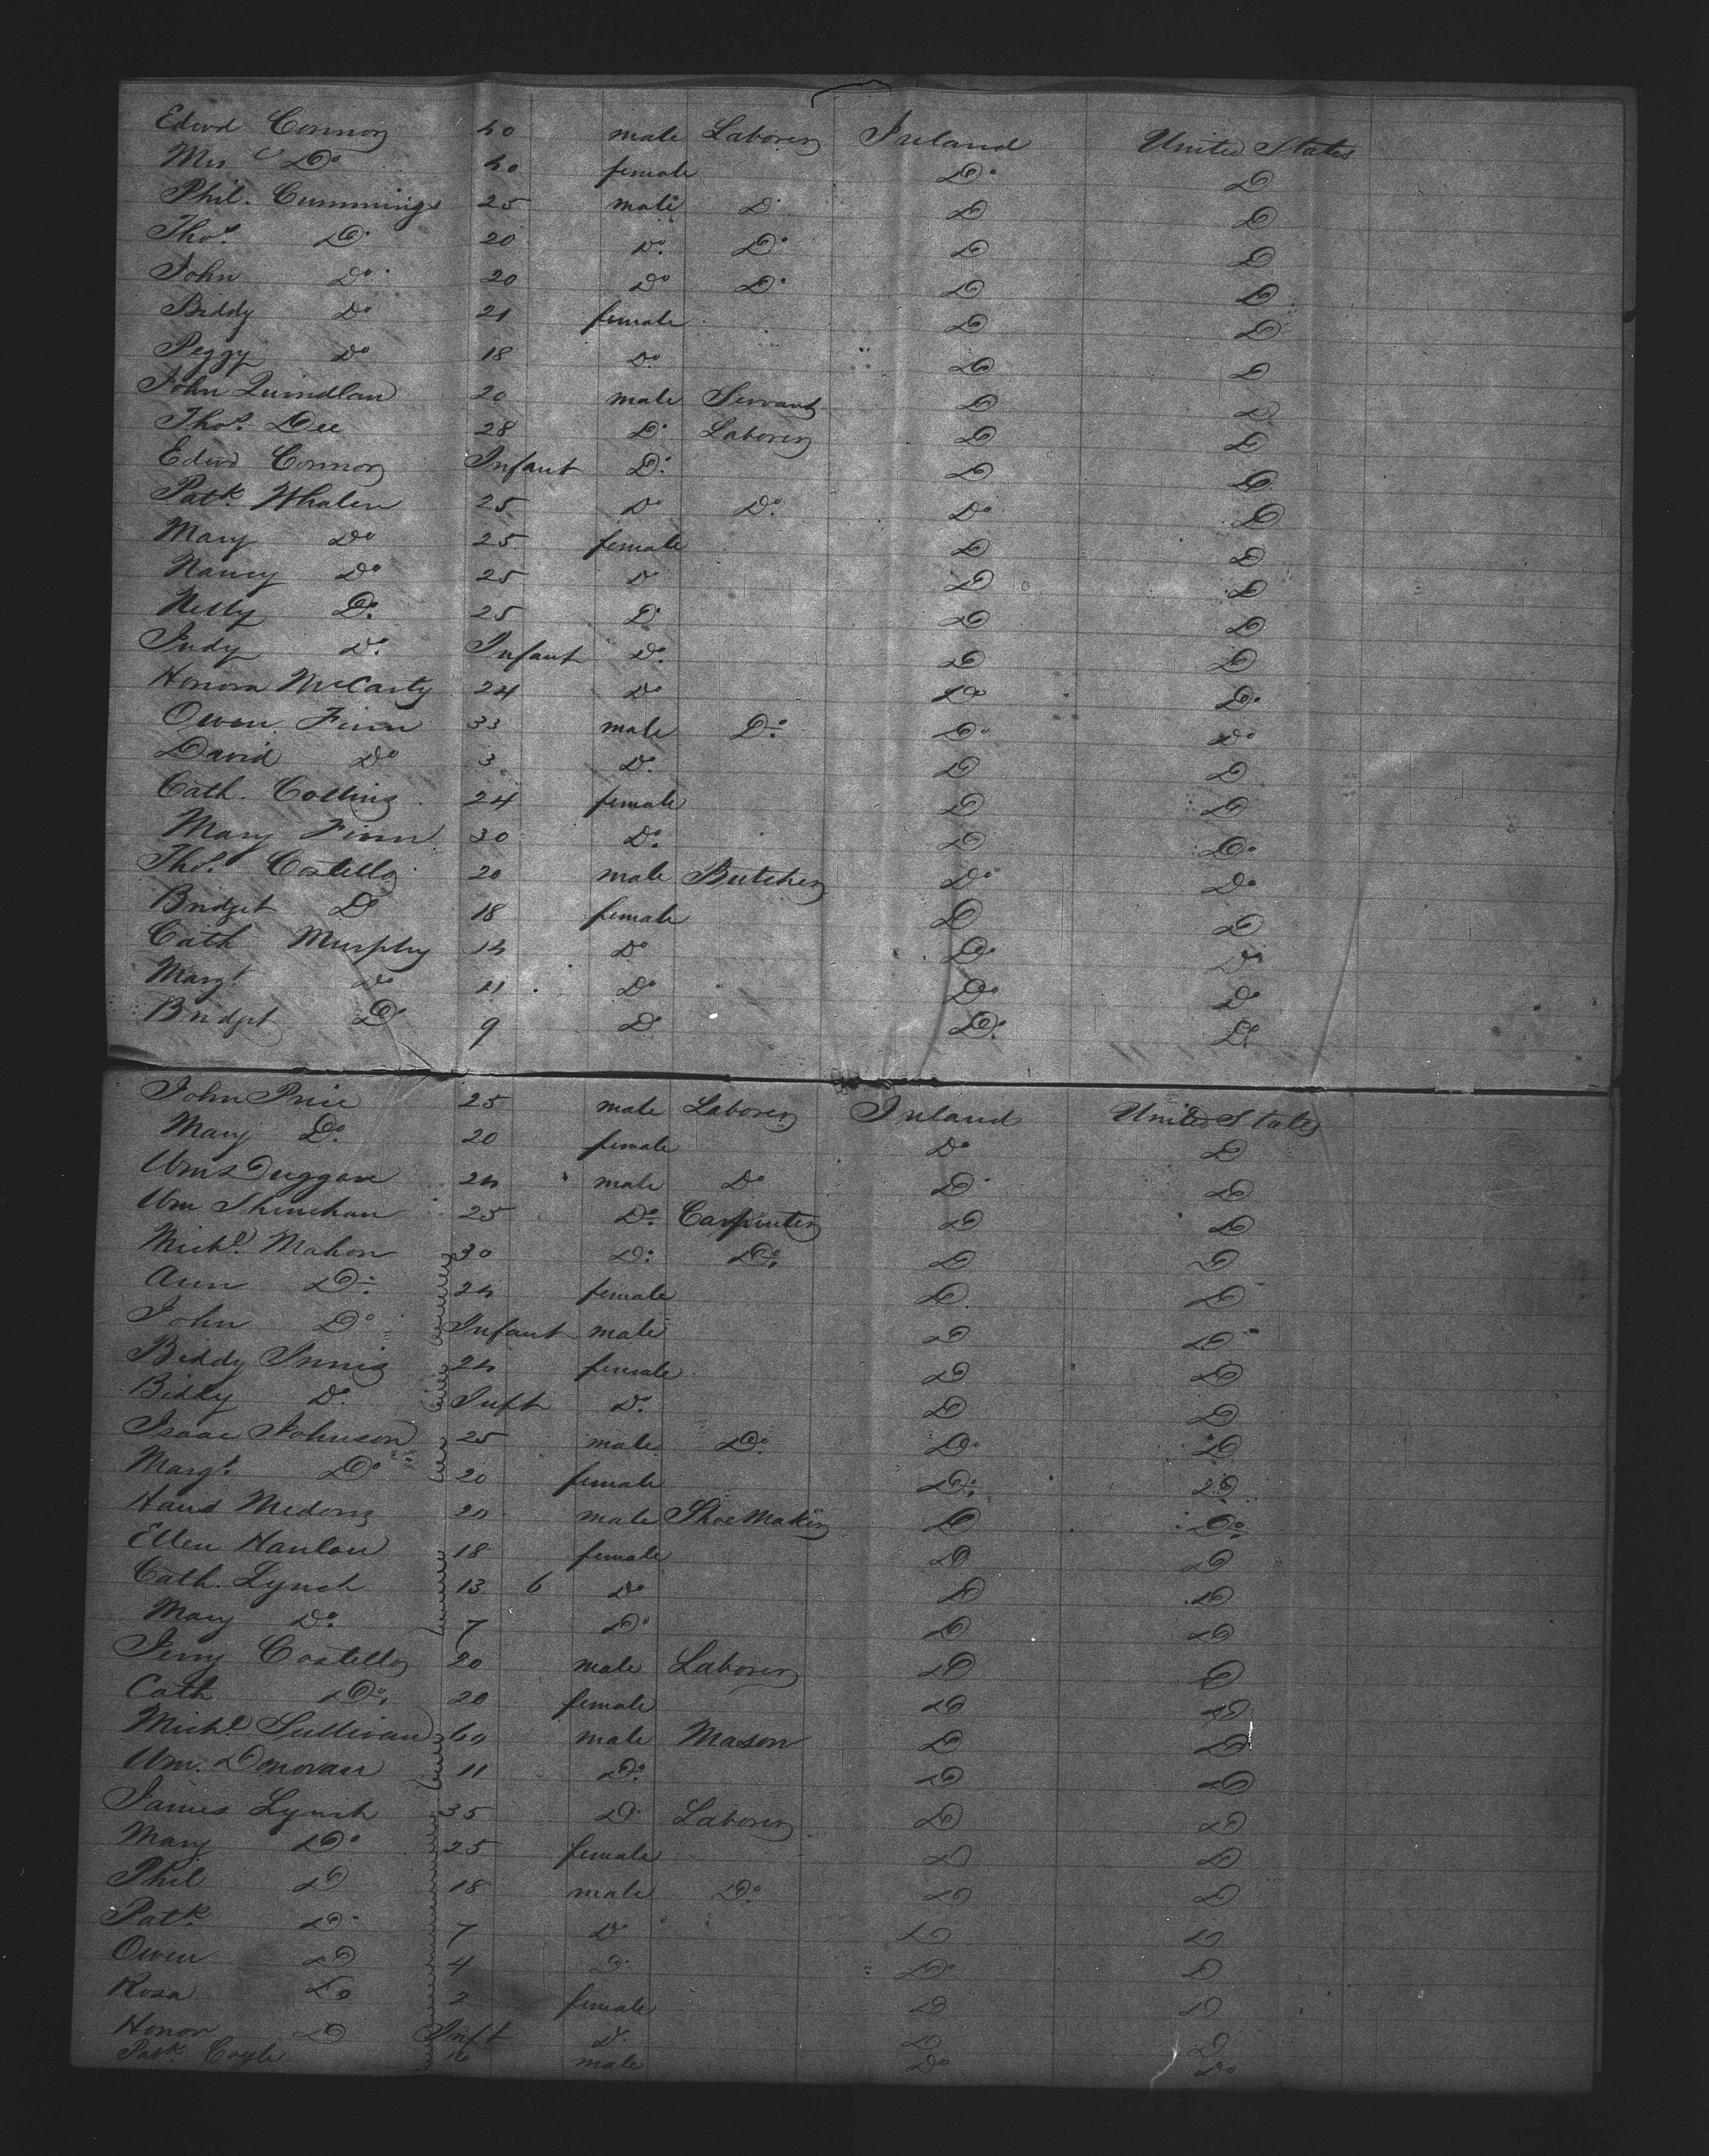 Edwd Connor 40 male Laborer Ireland United States
Mrs Do 40 female Do Do
Phil. Cummings 25 male Do Do Do
Thos. Do 20 Do Do Do Do
John Do 20 Do Do Do Do
Biddy Do 21 female Do Do
Peggy Do 18 Do Do Do
John Quindlan 20 male Servant Do Do
Thos. Dee 28 Do Laborer Do Do
Edwd Connor Infant Do Do Do
Patk. Whalen 25 Do Do Do Do
Mary Do 25 female Do Do
Nancy Do 25 Do Do Do
Nelly Do 25 Do Do Do
Judy Do Infant Do Do Do
Honora McCarty 24 Do Do Do
Owen Finn 33 male Do Do Do
David Do 3 Do Do Do
Cath. Collins 24 female Do Do
Mary Finn 30 Do Do Do
Thos. Costello 20 male Butcher Do Do
Bridget Do 18 female Do Do
Cath Murphy 14 Do Do Do
Margt Do 11 Do Do Do
Bridget Do 9 Do Do Do
John Price 25 male Laborer Ireland United States
Mary Do 20 female Do Do
Wm Duggan 24 male Do Do Do
Wm Shinehan 25 Do Carpenter Do Do
Michl. Mahon 30 Do Do Do Do
Ann Do 24 female Do Do
John Do Infant male Do Do
Biddy Innis 24 female Do Do
Biddy Do Inft Do Do Do
Isaac Johnson 25 male Do Do Do
Margt. Do 20 female Do Do
20 male Shoe Maker Do Do
Ellen Hanlon 18 female Do Do
Cath. Lynch 13 6 Do Do Do
Mary Do 7 Do Do Do
Jerry Costello 20 male Laborer Do Do
Cath Do 20 female Do Do
Michl Sullivan 60 male Mason Do Do
Wm. Donovan 11 Do Do Do
James Lynch 35 Do Laborer Do Do
Mary Do 25 female Do Do
Phil Do 18 male Do Do Do
Patk. Do 7 Do Do Do
Owen Do 4 Do Do Do
Rosa Do 2 female Do Do
Honor Do Inft Do Do Do
Patk Coyle male Do Do